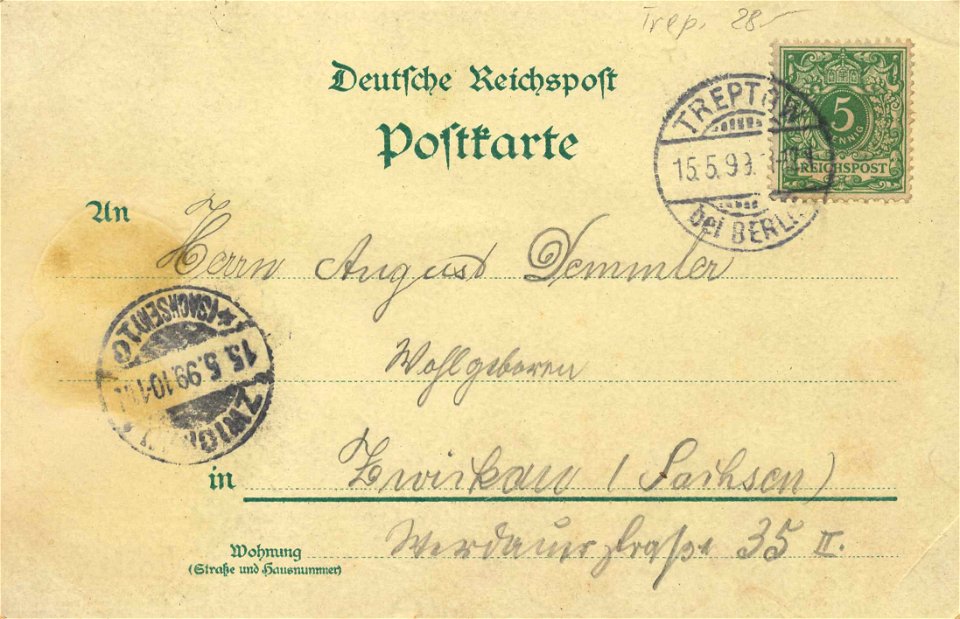 Trep. 28-
Deutsche Reichspost
Postkarte
5
PFENNIG
REICHSPOST
TREPTOW
15.5.99.
bei BERLIN
An
Herrn August Demmler
Wohlgeboren
(SACHSEN) 10
15.5.99.10-11
ZWICKAU
in Zwickau (Sachsen)
Wohnung Werdauerstraße 35 II.
(Straße und Hausnummer)